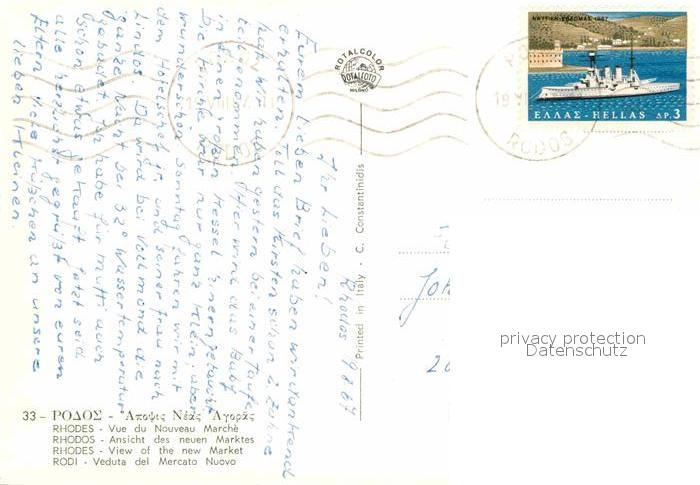 Rhodos 9 8 67
Ihr Lieben!
Eurem lieben Brief haben wir dankend
erhalten. Toll das Kirsten schon 2 Zähne
hat. Wir haben gestern bei einer Taufe
teilgenommen. Hier wird das Baby
in einen großen Kessel hineingetaucht
Die Kirche war nur ganz klein, aber
wunderschön. Sonntag fahren wir mit
dem Hotelschef und seiner Frau nach
Lindos. Da wird bei Vollmond die
ganze Nacht bei 32° Wassertemperatur
gebadet. Ich habe für Mutti auch
schon etwas gekauft. Jetzt seid
alle herzlichst gegrüßt von euren
Eltern. Viele Küßchen an unsere
lieben Kleinen.
33 - ΡΟΔΟΣ - Ἄποψις Νέας Ἀγορᾶς
RHODES - Vue du Nouveau Marchè
RHODOS - Ansicht des neuen Marktes
RHODES - View of the new Market
RODI - Veduta del Mercato Nuovo
ROTALCOLOR
ROTALFOTO
MILANO
Printed in Italy - C. Constantinidis
ΝΑΥΤΙΚΗ ΕΒΔΟΜΑΣ 1967
ΕΛΛΑΣ - HELLAS ΔΡ. 3
RODOS
privacy protection
Datenschutz